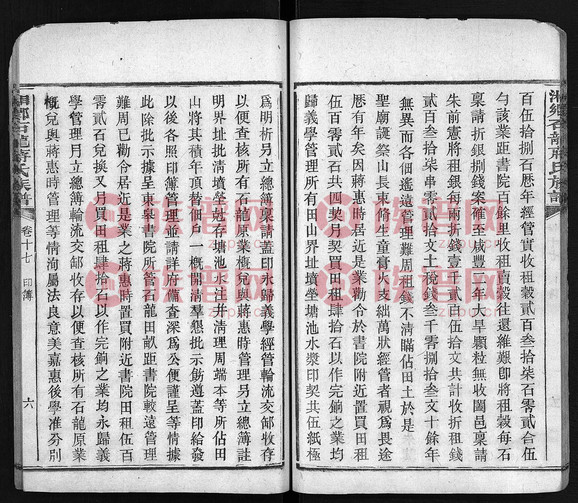 湘鄉石龍蔣氏族譜
百伍拾捌石歷年經管實收租穀貳百叁拾柒石零貳合伍
勺該業距書院百餘里收租賣穀往還維艱卽將租穀每石
稟請折銀捌錢案確至咸豐二年大旱顆粒無收闔邑稟請
朱前憲將前租銀每兩折錢壹千貳百伍拾文共計收折租錢
貳百叁拾柒串零貳拾文土稅錢叁千零捌拾叁文十餘年
無異而各佃遙遠管理難周租錢不清瞞佔田土於是
聖廟誕祭山長束脩生童膏火支絀萬狀經管者視爲畏途
歷有年矣因蔣惠時居近是業勸令於書院附近置買田租
伍百零貳石共
歸義學管理所有田山界址墳塋塘池水漿印契共伍紙極
爲明析另立總簿稟請蓋印永歸義學經管輪流交卸收存
以便查核所有石龍原業槪兌與蔣惠時管理另立總簿註
明界址批清墳塋
山將其積年頂替佃戶一概開清羣懇批示飭遵蓋印給發
以後各照印簿管理並請詳府備查深爲公便謹呈等情據
此除批示據呈東皋書院所管石龍田畝距書院較遠管理
難周已勸令居近是業之蔣惠時置買附近書院田租伍百
零貳石兌換又月買田租肆拾石以作完餉之業均永歸義
學管理另立總簿輪流交卸收存以便查核所有石龍原業
槪兌與蔣惠時管理等情洵屬法良意美嘉惠後學准分別
湘鄉石龍蔣氏族譜
卷十七
印簿
六
族譜网
族譜网
族譜网
族譜网